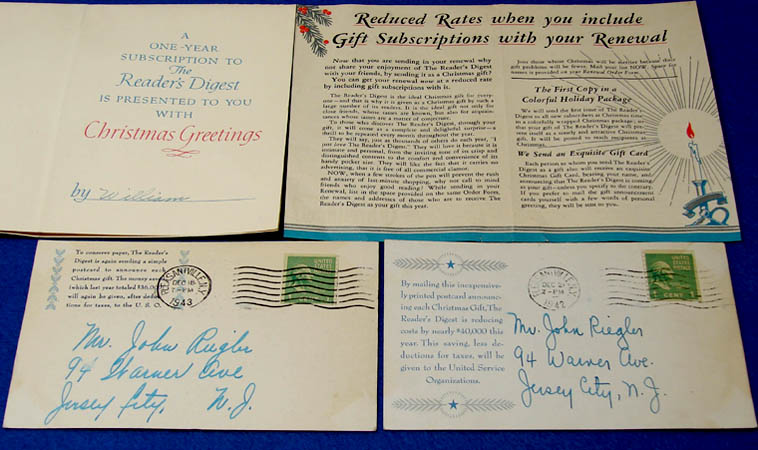 A
ONE-YEAR
SUBSCRIPTION TO
The
Reader's Digest
IS PRESENTED TO YOU
WITH
Christmas Greetings
by William
Reduced Rates when you include
Gift Subscriptions with your Renewal
Now that you are sending in your renewal why
not share your enjoyment of The Reader's Digest
with your friends, by sending it as a Christmas gift?
You can get your renewal now at a reduced rate
by including gift subscriptions with it.
The Reader's Digest is the ideal Christmas gift for every-
one—and that is why it is given as a Christmas gift by such a
large number of its readers. It is the ideal gift not only for
close friends, whose tastes are known, but also for acquaint-
ances whose tastes are a matter of conjecture.
To those who discover The Reader's Digest, through your
gift, it will come as a complete and delightful surprise—a
thrill to be repeated every month throughout the year.
They will say, just as thousands of others do each year, "I
just love The Reader's Digest." They will love it because it is
intimate and personal, from the inviting tone of its crisp and
distinguished contents to the comfort and convenience of its
handy pocket size. They will like the fact that it carries no
advertising, that it is free of all commercial clamor.
NOW, when a few strokes of the pen will prevent the rush
and anxiety of last-minute shopping, why not call to mind
friends who enjoy good reading? While sending in your
Renewal, list in the space provided on the same Order Form,
the names and addresses of those who are to receive The
Reader's Digest as your gift this year.
Join those whose Christmas will be merrier because their
gift problems will be fewer. Mail your list NOW. Space for
names is provided on your Renewal Order Form.
The First Copy in a
Colorful Holiday Package
We will send the first issue of The Reader's
Digest to all new subscribers at Christmas time
in a colorfully wrapped Christmas package;
that your gift of The Reader's Digest will pre-
sent itself as a timely and attractive Christmas
gift. It will be posted to reach recipients at
Christmas.
We Send an Exquisite Gift Card
Each person to whom you send The Reader's
Digest as a gift also will receive an exquisite
Christmas Gift Card, bearing your name, and
announcing that The Reader's Digest is coming
as your gift—unless you specify to the contrary.
If you prefer to mail the gift announcement
cards yourself with a few words of personal
greeting, they will be sent to you.
To conserve paper, The Reader's
Digest is again sending a simple
postcard to announce each
Christmas gift. The money saved
(which last year totaled
will again be given, after deduc-
tions for taxes, to the U. S. O.
PLEASANTVILLE, N.Y.
DEC 18
7-PM
1943
UNITED STATES
Mr. John Riegler
94 Warner Ave
Jersey City, N. J.
By mailing this inexpensive-
ly printed postcard announc-
ing each Christmas Gift, The
Reader's Digest is reducing
costs by nearly $40,000 this
year. This saving, less de-
ductions for taxes, will be
given to the United Service
Organizations.
PLEASANTVILLE, N.Y.
DEC
PM
1942
UNITED STATES
POSTAGE
1 CENT 1
Mr. John Riegler
94 Warner Ave.
Jersey City, N. J.